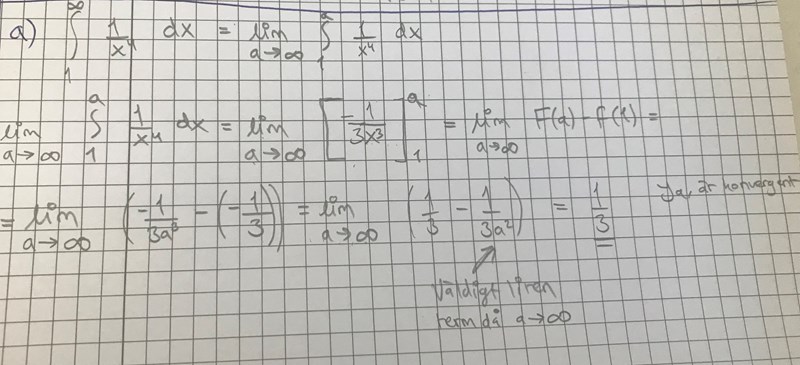 a) ∞∫1 1/x⁴ dx = lim a→∞ a∫1 1/x⁴ dx
lim a→∞ a∫1 1/x⁴ dx = lim a→∞ [-1/3x³]a1 = lim a→∞ F(a) - F(1) =
= lim a→∞ (-1/3a³ - (-1/3)) = lim a→∞ (1/3 - 1/3a²) = 1/3 Ja, är konvergent
Väldigt liten
term då a→∞